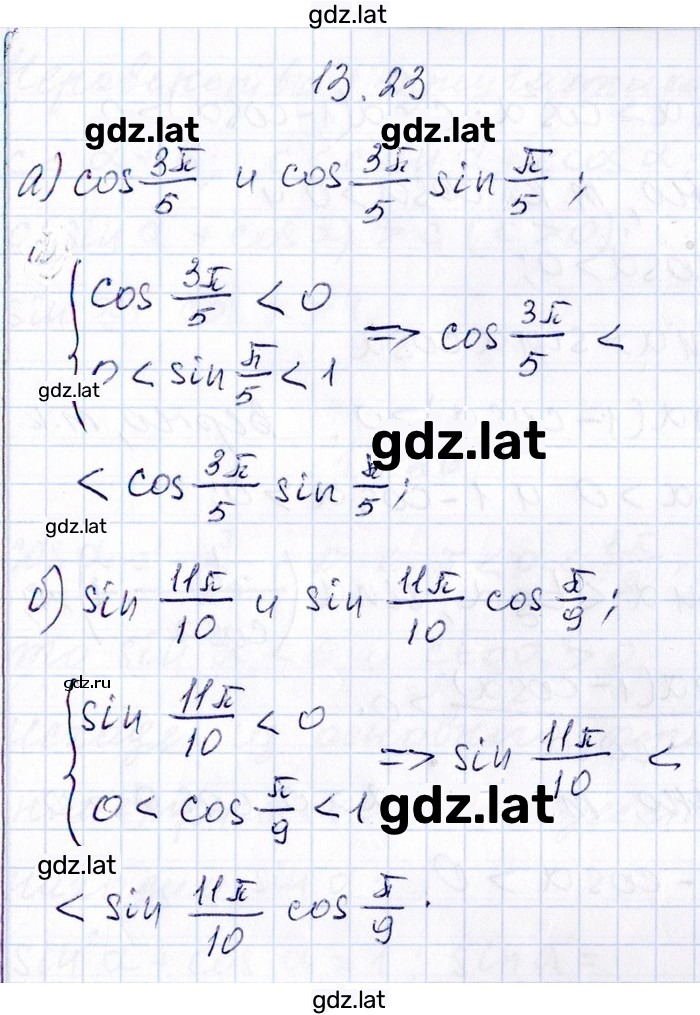 gdz.lat
13.23
gdz.lat gdz.lat
а) cos 3π/5 и cos 3π/5 sin π/5;
{ cos 3π/5 < 0
0 < sin π/5 < 1 => cos 3π/5 <
gdz.lat
gdz.lat
< cos 3π/5 sin π/5;
gdz.lat
б) sin 11π/10 и sin 11π/10 cos π/9;
gdz.ru
{ sin 11π/10 < 0
0 < cos π/9 < 1 => sin 11π/10 <
gdz.lat
gdz.lat
< sin 11π/10 cos π/9.
gdz.lat